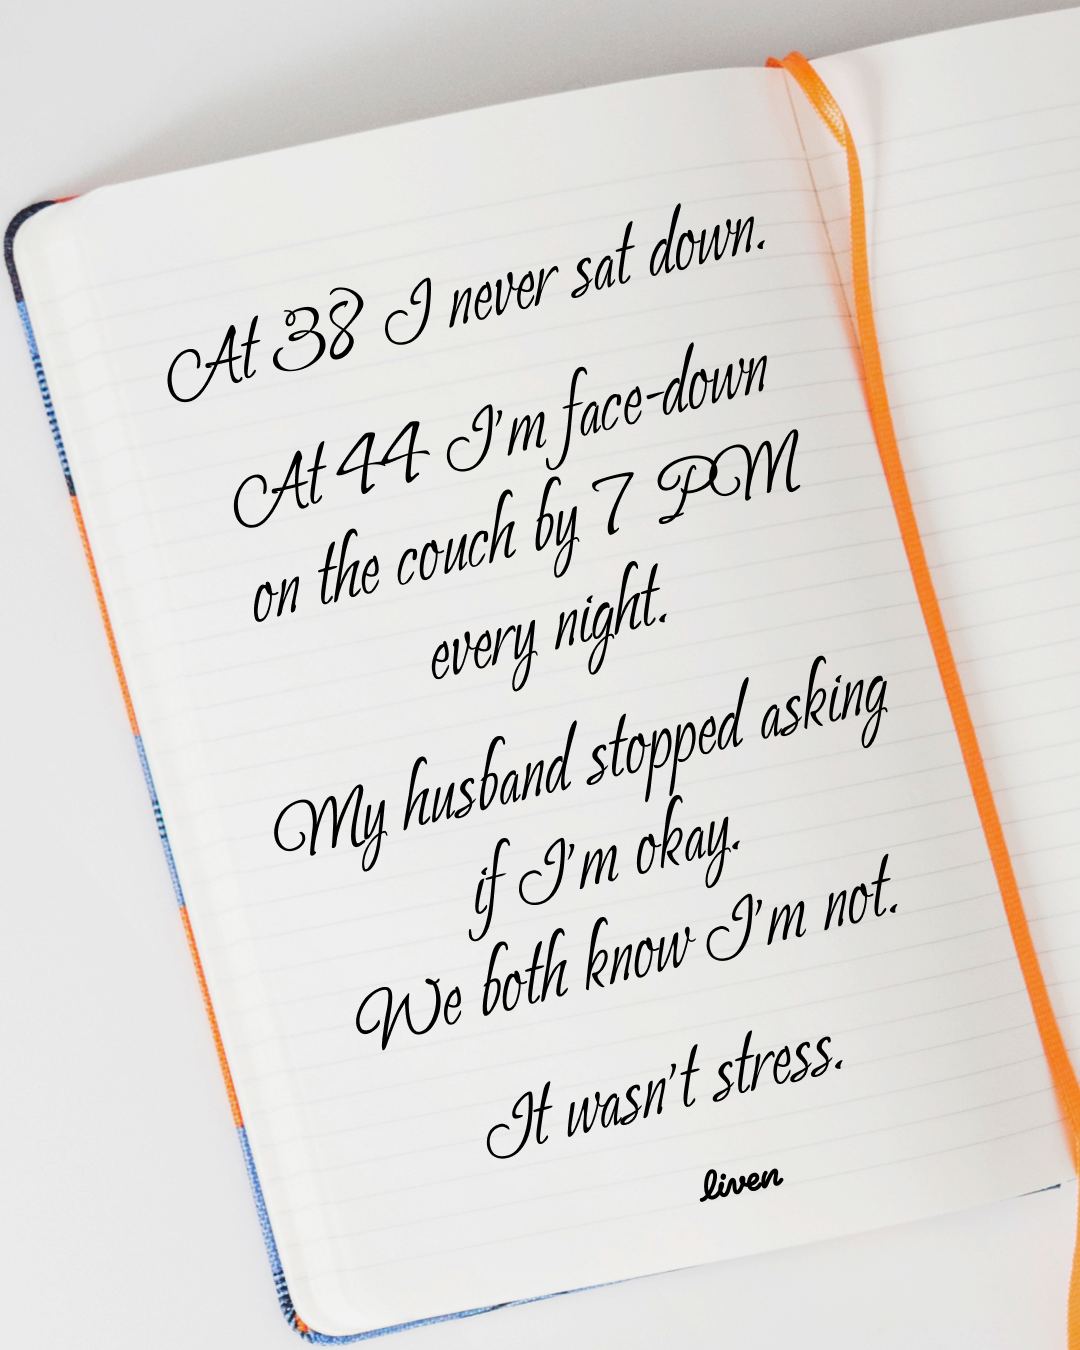 At 38 I never sat down.
At 44 I'm face-down
on the couch by 7 PM
every night.
My husband stopped asking
if I'm okay.
We both know I'm not.
It wasn't stress.
liven